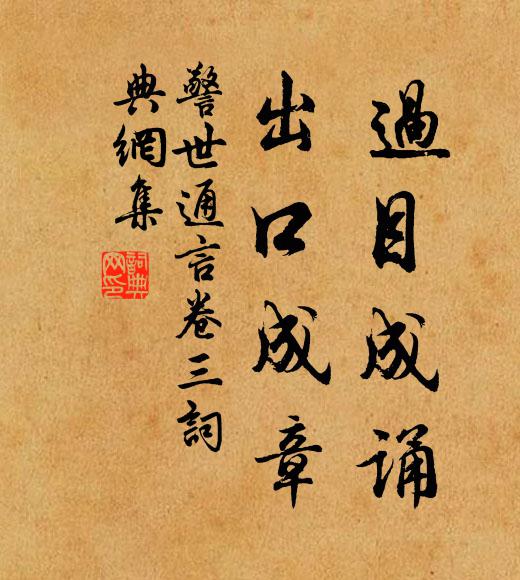 過目成诵
出口成章
警世通言卷三詞
典網集
詞典
网印